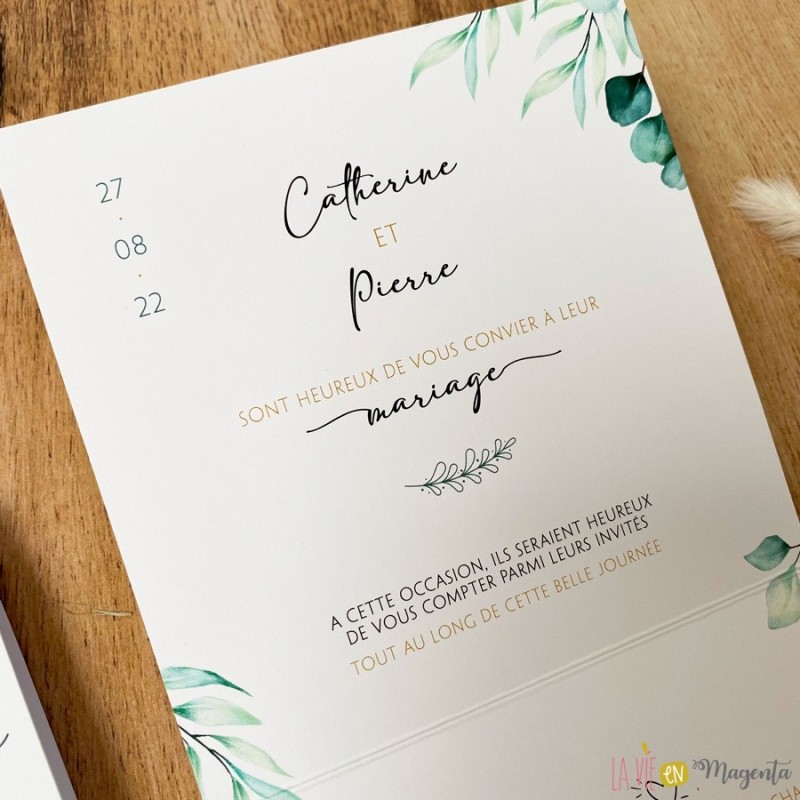 27
.
08
.
22
Catherine
ET
Pierre
SONT HEUREUX DE VOUS CONVIER À LEUR
mariage
A CETTE OCCASION, ILS SERAIENT HEUREUX
DE VOUS COMPTER PARMI LEURS INVITÉS
TOUT AU LONG DE CETTE BELLE JOURNÉE
LA VIE EN Magenta